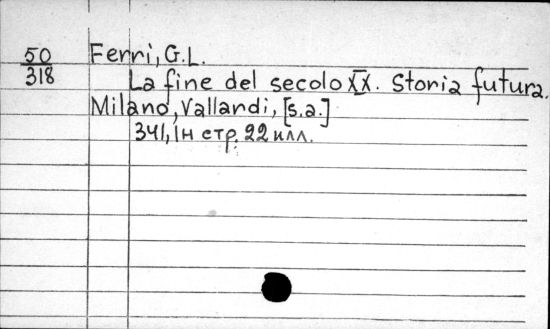 50
318
Ferri, G.L.
La fine del secolo XX. Storia futura.
Milano, Vallandi, [s.a.]
341, 1н стр. 22 илл.